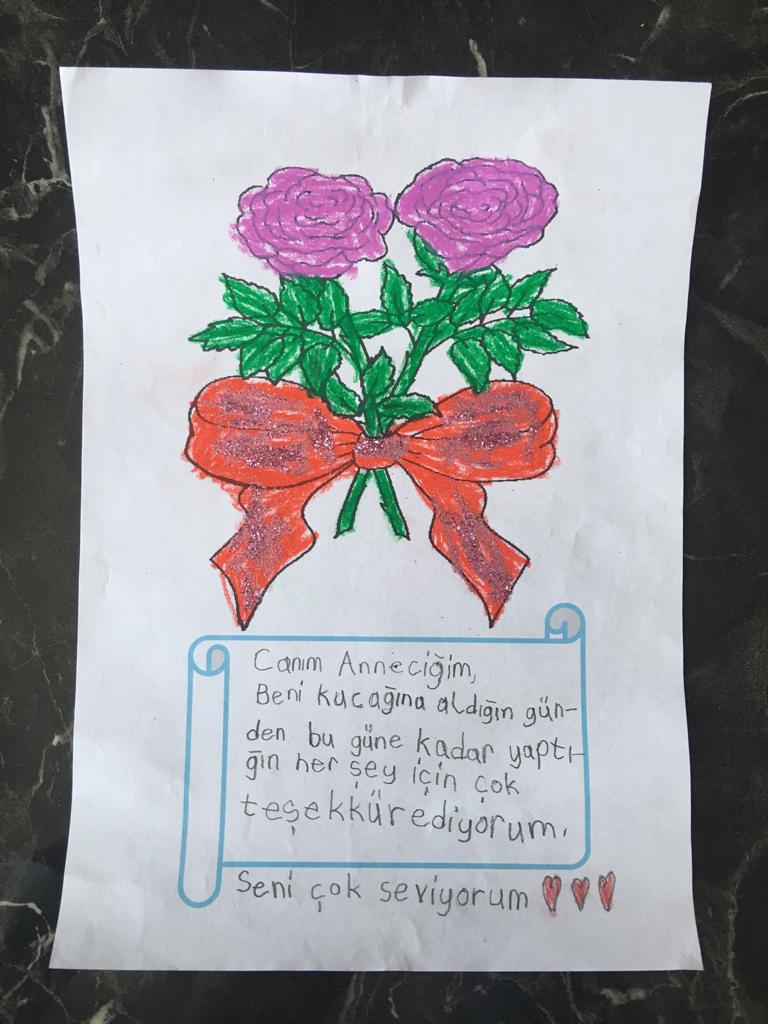 Canım Anneciğim,
Beni kucağına aldığın gün-
den bu güne kadar yaptı-
ğın her şey için çok
teşekkür ediyorum.
Seni çok seviyorum